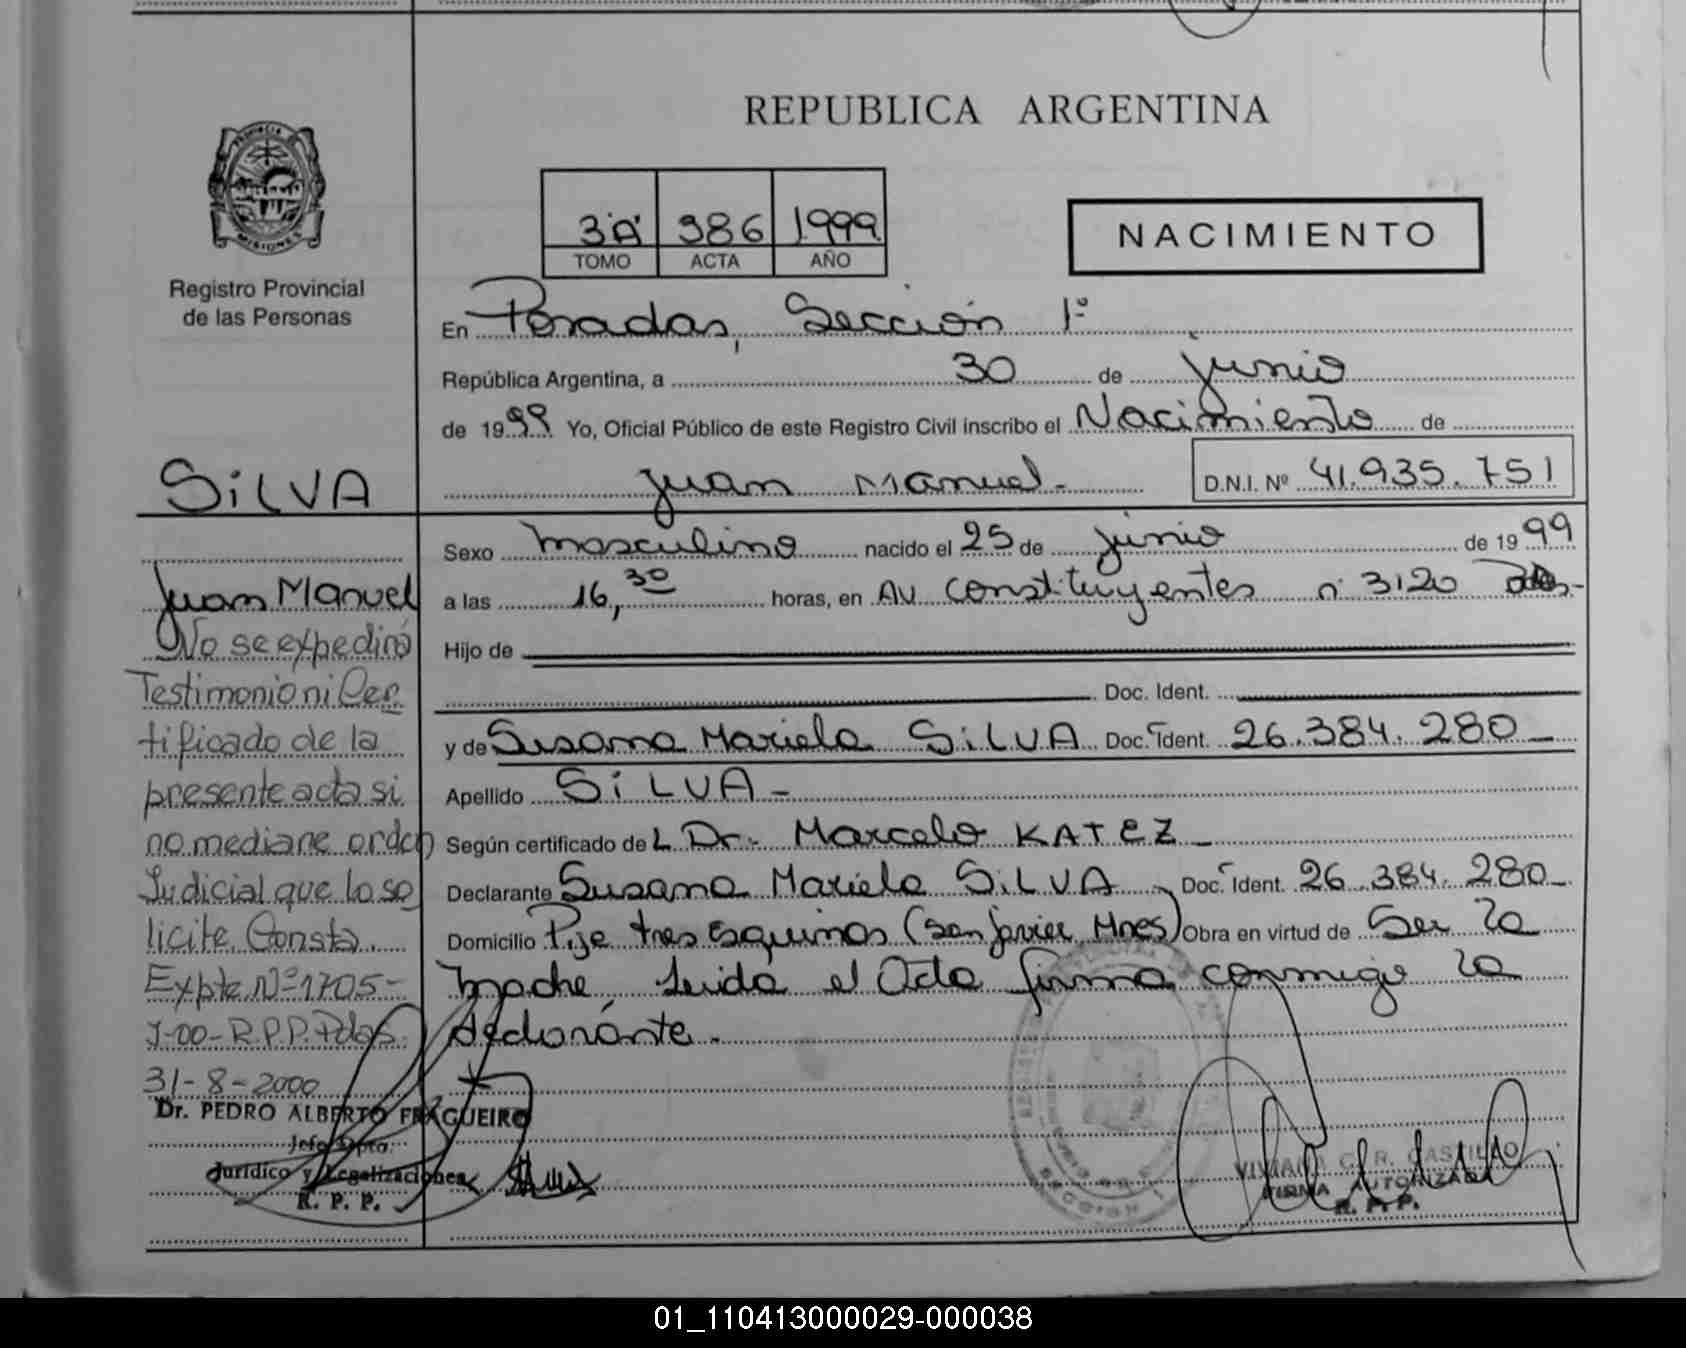 REPUBLICA ARGENTINA
PROVINCIA
MISIONES
Registro Provincial
de las Personas
3"A" 386 1999
TOMO ACTA AÑO
NACIMIENTO
En Posadas, Sección 1º
República Argentina, a 30 de junio
de 1999 Yo, Oficial Público de este Registro Civil inscribo el Nacimiento de
Juan Manuel - D.N.I. Nº 41.935.751
SILVA
Juan Manuel
No se expedirá
Testimonio ni Cer
tificado de la
presente acta si
no mediane orden
Judicial que lo so
licite. Consta
Expte Nº 1705-
J-00-R.P.P. Pdas.
31-8-2000
Dr. PEDRO ALBERTO FRAGUEIRO
Jefe Dpto.
Jurídico y Legalizaciones
R. P. P.
Sexo masculino nacido el 25 de junio de 1999
a las 16,30 horas, en Av Constituyentes nº 3120 Pdas.-
Hijo de
Doc. Ident.
y de Susana Mariela SILVA Doc. Ident. 26.384.280-
Apellido SILVA-
Según certificado de L Dr. Marcelo KATEZ-
Declarante Susana Mariela SILVA- Doc. Ident. 26.384.280-
Domicilio Pje tres Esquinas (San Javier, Mnes) Obra en virtud de Ser la
madre, Leida el Acta firma conmigo la
declarante.
VIVIANA C. R. CASTILLO
FIRMA AUTORIZADA
R. P. P.
01_110413000029-000038